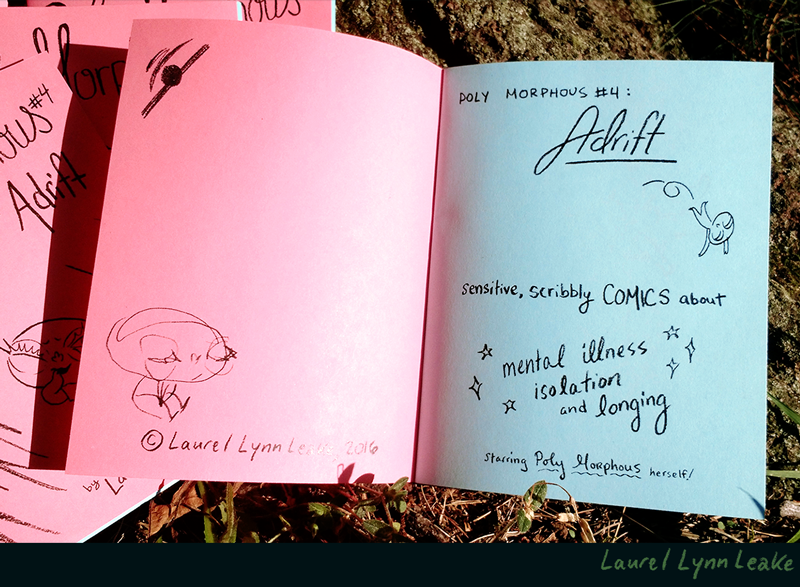 #4
Adrift
by
© Laurel Lynn Leake 2016
POLY MORPHOUS #4:
Adrift
sensitive, scribbly COMICS about
mental illness
isolation
and longing
starring Poly Morphous herself!
Laurel Lynn Leake